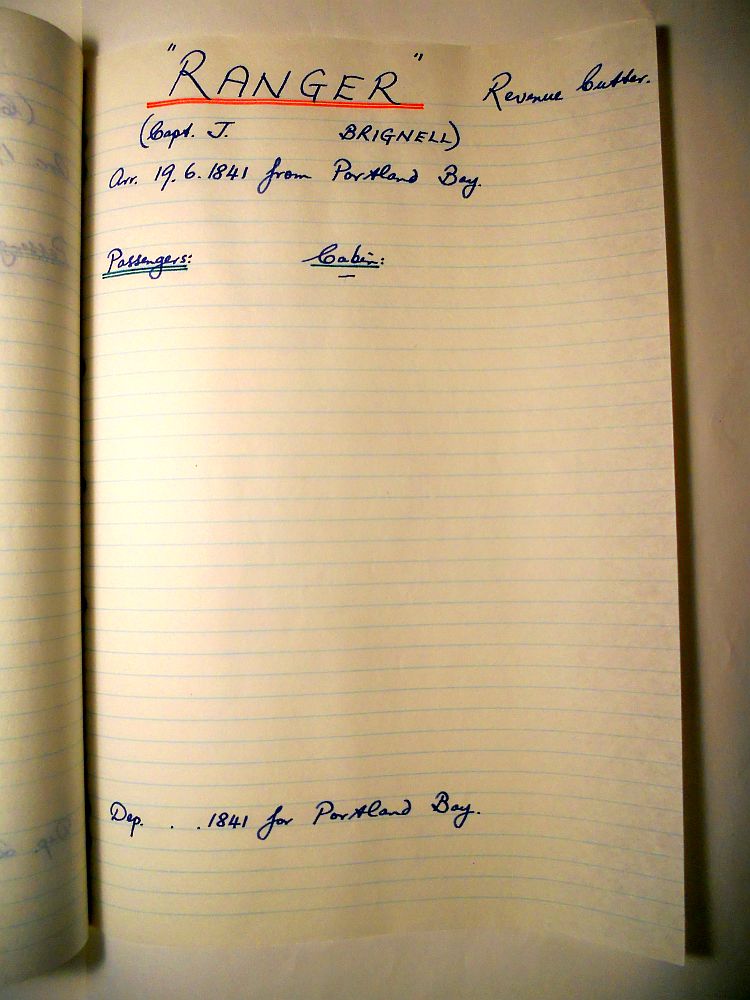 "RANGER" Revenue Cutter.
(Capt. J. BRIGNELL)
Arr. 19.6.1841 from Portland Bay.
Passengers: Cabin:
—
Dep. . .1841 for Portland Bay.